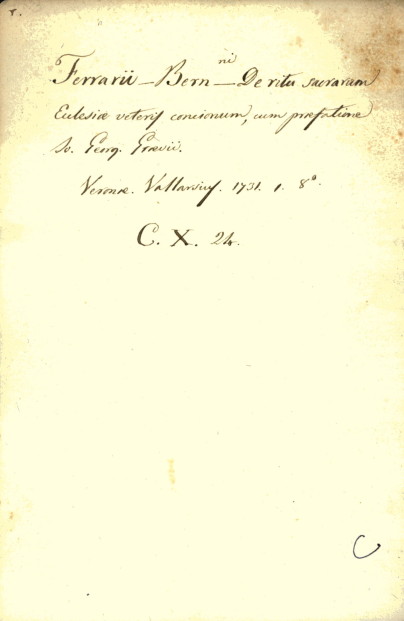 r.
Ferrarii — Bern.ni — De ritu sacrarum
Eclesiæ veteris concionum, cum præfatione
Io. Georg. Grævii.
Veronæ. Vallarsius. 1731. 1. 8°.
C. X. 24.
C